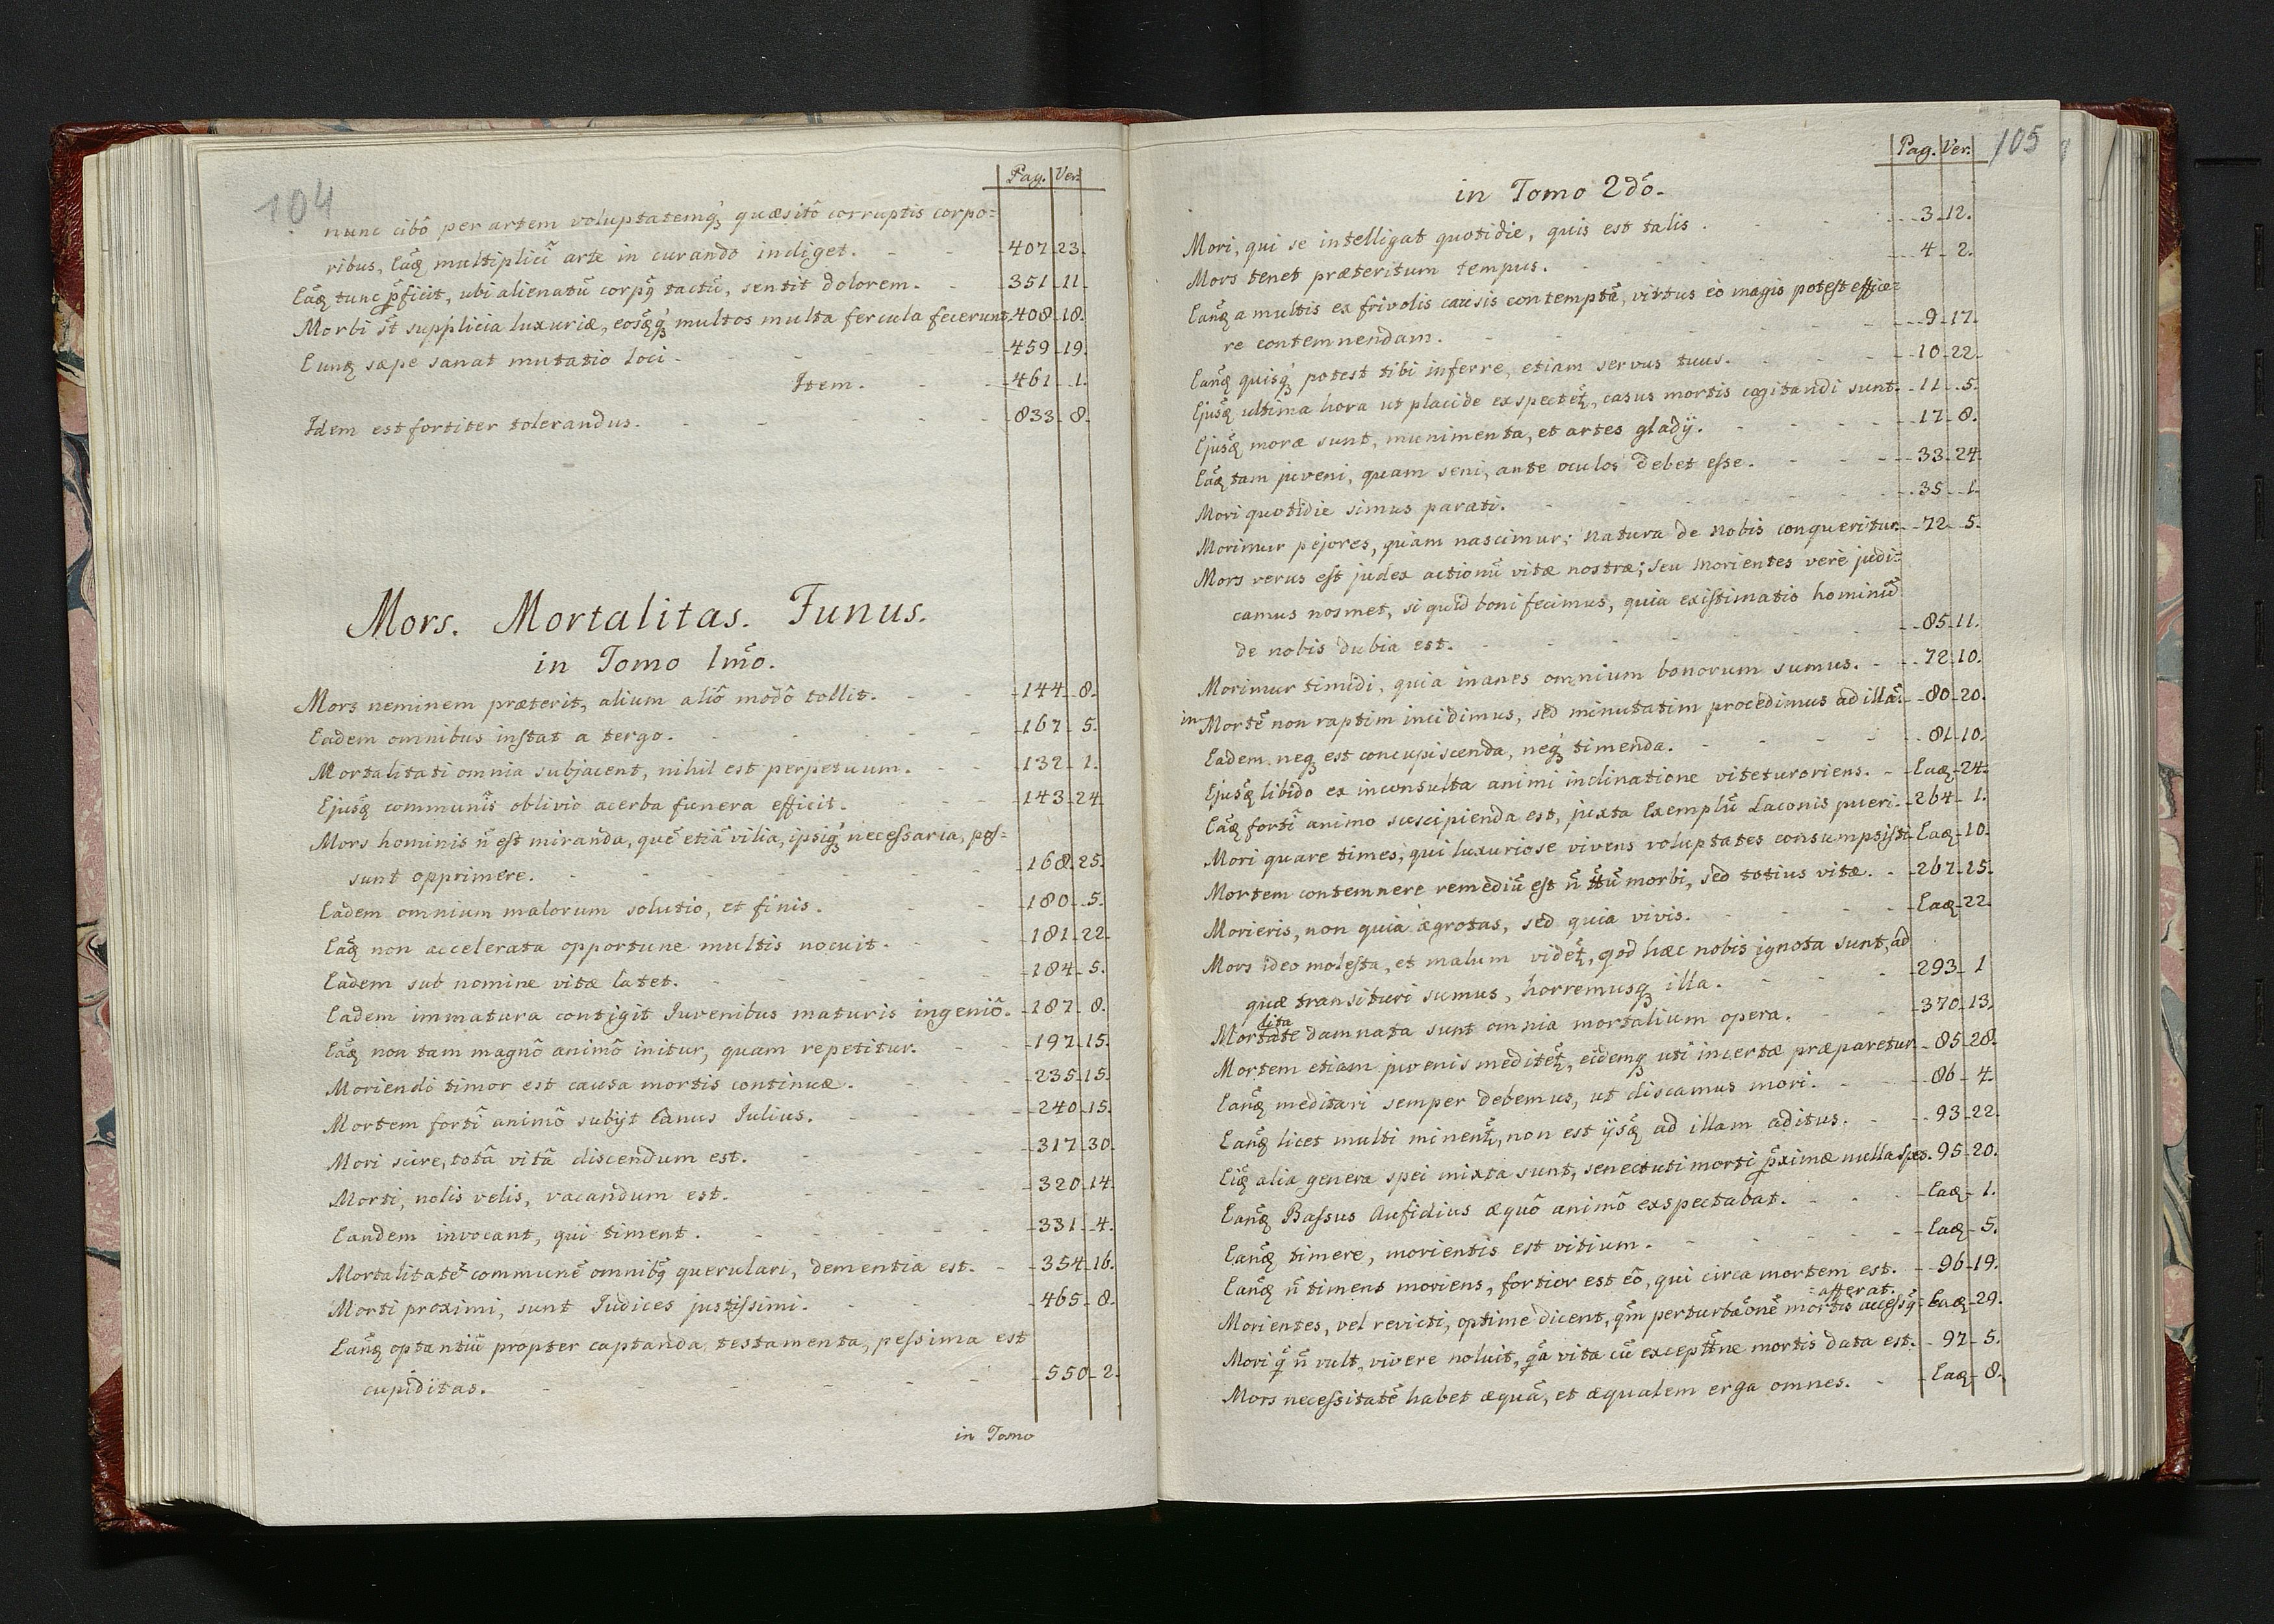 104
Pag. Ver.
nunc cibô per artem voluptatemq́ꝫ quæsitô corruptis corpo=
ribus, Eâdꝫ multiplici arte in curando indiget. - - 407. 23.
tunc ꝓficit, ubi alienatũ corpꝯ tactũ, sentit dolorem. - 351. 11.
Morbi st̃ supplicia luxuriæ, eosq́ꝫ multos multa fercula fecerunt. 408. 18.
Eundꝫ sæpe sanat mutatio loci - - - - 459. 19.
Item. - - 461. 1.
Idem est fortiter tolerandus. - - - - 833. 8.
Mors. Mortalitas. Funus.
in Tomo 1mõ.
Mors neminem præterit, alium aliô modô tollit. - - 144. 8.
Eadem omnibus instat a tergo. - - - - 167. 5.
Mortalitati omnia subjacent, nihil est perpetuum. - - 132. 1.
Ejusđꝫ communis oblivio acerba funera efficit. - - - 143. 24.
Mors hominis ñ est miranda, quẽ etiã vilia, ipsiq́ꝫ necessaria, pos=
sunt opprimere. - - - - - 168. 25.
Eadem omnium malorum solutio, et finis. - - - 180. 5.
Eađꝫ non accelerata opportune multis nocuit. - - - 181. 22.
Eadem sub nomine vitæ latet. - - - - 184. 5.
Eadem immatura contigit Juvenibus maturis ingeniô. - 187. 8.
Eađꝫ non tam magnô animô initur, quam repetitur. - - 197. 15.
Moriendi timor est causa mortis continuæ. - - - 235. 15.
Mortem forti animô subijt Canus Julius. - - - 240. 15.
Mori scire, totâ vitâ discendum est. - - - - 317. 30.
Morti, nolis velis, vacandum est. - - - - 320. 14.
Eandem invocant, qui timent. - - - - - 331. 4.
Mortalitatẽ communẽ omnibꝯ querulari, dementia est. - 354. 16.
Morti proximi, sunt Judices justissimi. - - - - 465. 8.
Eanđꝫ optantiũ propter captanda testamenta, pessima est
cupiditas. - - - - - - 550. 2.
in Tomo
105
Pag. Ver.
in Tomo 2dõ.
Mori, qui se intelligat quotidie, quis est talis. - - - 3. 12.
Mors tenet præteritum tempus. - - - - 4. 2.
Eanđꝫ a multis ex frivolis causis contemptã, virtus eò magis potest effice=
re contemnendam. - - - - - 9. 17.
Eanđꝫ quisq́ꝫ potest tibi inferre, etiam servus tuus. - - - 10. 22.
Ejusđꝫ ultima hora ut placide exspectet̃, casus mortis cogitandi sunt. 11. 5.
Ejusđꝫ moræ sunt, munimenta, et artes gladij. - - - - 17. 8.
Eađꝫ tam juveni, quam seni, ante oculos debet esse. - - - 33. 24.
Mori quotidie simus parati. - - - - - 35. 1.
Morimur pejores, quàm nascimur; natura de nobis conqueritur. 72. 5.
Mors verus est judex actionũ vitæ nostræ; seu morientes verè judi=
camus nosmet, si quid boni fecimus, quia existimatio hominũ
de nobis dubia est. - - - - - 85. 11.
Morimur timidi, quia inanes omnium bonorum sumus. - - 72. 10.
in Mortẽ non raptim incidimus, sed minutatim procedimus ad illã. 80. 20.
Eadem neqꝫ est concupiscenda, neq́ꝫ timenda. - - - - 81. 10.
Ejusđꝫ libido ex inconsulta animi inclinatione vitetur oriens. - Eađꝫ 24.
Eađꝫ forti animo suscipienda est, juxta Exemplũ Laconis pueri. 264. 1.
Mori quare times, qui luxuriose vivens voluptates consumpsisti. Eađꝫ 10.
Mortem contemnere remediũ est ñ ttũ morbi, sed totius vitæ. - 267. 15.
Morieris, non quia ægrotas, sed quia vivis. - - - - Eađꝫ 22.
Mors ideo molesta, et malum videt̃, qođ hæc nobis ignota sunt, ad
quæ transituri sumus, horremusqꝫ illa. - - - 293. 1
lita
Mortate damnata sunt omnia mortalium opera. - - - 370. 13.
Mortem etiam juvenis meditet̃, eidemqꝫ uti incertæ præparetur. 85. 28.
Eanđꝫ meditari semper debemus, ut discamus mori. - - - 86. 4.
Eanđꝫ licet multi minent̃, non est ijsđꝫ ad illam aditus. - - 93. 22.
Eiđꝫ alia genera spei mixta sunt, senectuti morti ꝓximæ nulla spes. 95. 20.
Eanđꝫ Bassus Aufidius æquô animô exspectabat. - - - Eađꝫ 1.
Eanđꝫ timere, morientis est vitium. - - - - - Eađꝫ 5.
Eanđꝫ ñ timens moriens, fortior est eô, qui circa mortem est. - 96. 19.
afferat.
Morientes, vel revicti, optime dicent, qm̃ perturbãonẽ mortis accessꝯ Eađꝫ 29.
Mori q̃ ñ vult, vivere noluit, qã vita cũ excepttne mortis data est. - 97. 5.
Mors necessitatẽ habet æquã, et æqualem erga omnes. - - Eađꝫ 8.